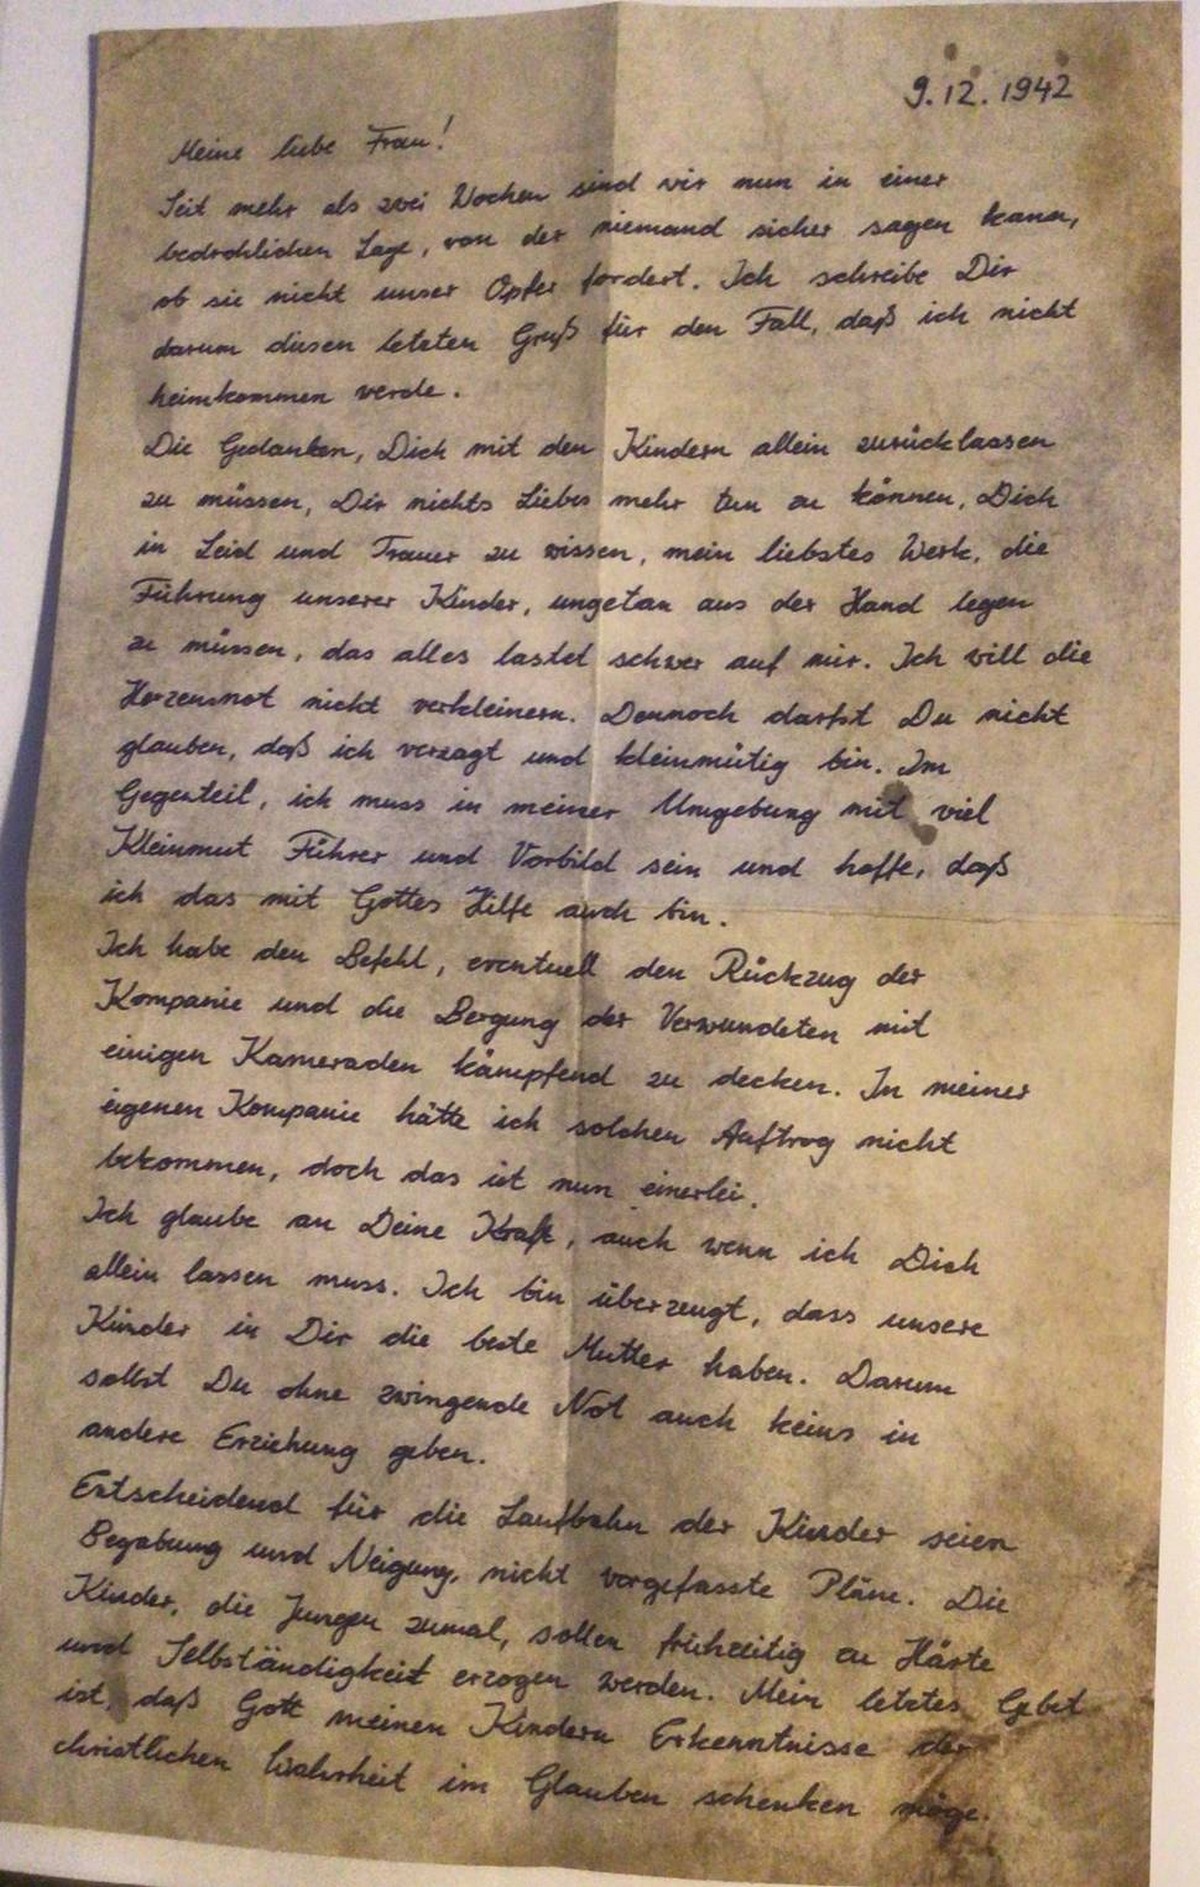 9.12.1942
Meine liebe Frau!
Seit mehr als zwei Wochen sind wir nun in einer
bedrohlichen Lage, von der niemand sicher sagen kann,
ob sie nicht unser Opfer fordert. Ich schreibe Dir
darum diesen letzten Gruß für den Fall, daß ich nicht
heimkommen werde.
Die Gedanken, Dich mit den Kindern allein zurücklassen
zu müssen, Dir nichts Liebes mehr tun zu können, Dich
in Leid und Trauer zu wissen, mein liebstes Werk, die
Führung unserer Kinder, ungetan aus der Hand legen
zu müssen, das alles lastet schwer auf mir. Ich will die
Herzensnot nicht verkleinern. Dennoch darfst Du nicht
glauben, daß ich verzagt und kleinmütig bin. Im
Gegenteil, ich muss in meiner Umgebung mit viel
Kleinmut Führer und Vorbild sein und hoffe, daß
ich das mit Gottes Hilfe auch bin.
Ich habe den Befehl, eventuell den Rückzug der
Kompanie und die Bergung der Verwundeten mit
einigen Kameraden kämpfend zu decken. In meiner
eigenen Kompanie hätte ich solchen Auftrag nicht
bekommen, doch das ist nun einerlei.
Ich glaube an Deine Kraft, auch wenn ich Dich
allein lassen muss. Ich bin überzeugt, dass unsere
Kinder in Dir die beste Mutter haben. Darum
sollst Du ohne zwingende Not auch keins in
andere Erziehung geben.
Entscheidend für die Laufbahn der Kinder seien
Begabung und Neigung, nicht vorgefasste Pläne. Die
Kinder, die Jungen zumal, sollen frühzeitig zu Härte
und Selbständigkeit erzogen werden. Mein letztes Gebet
ist, daß Gott meinen Kindern Erkenntnisse der
christlichen Wahrheit im Glauben schenken möge.